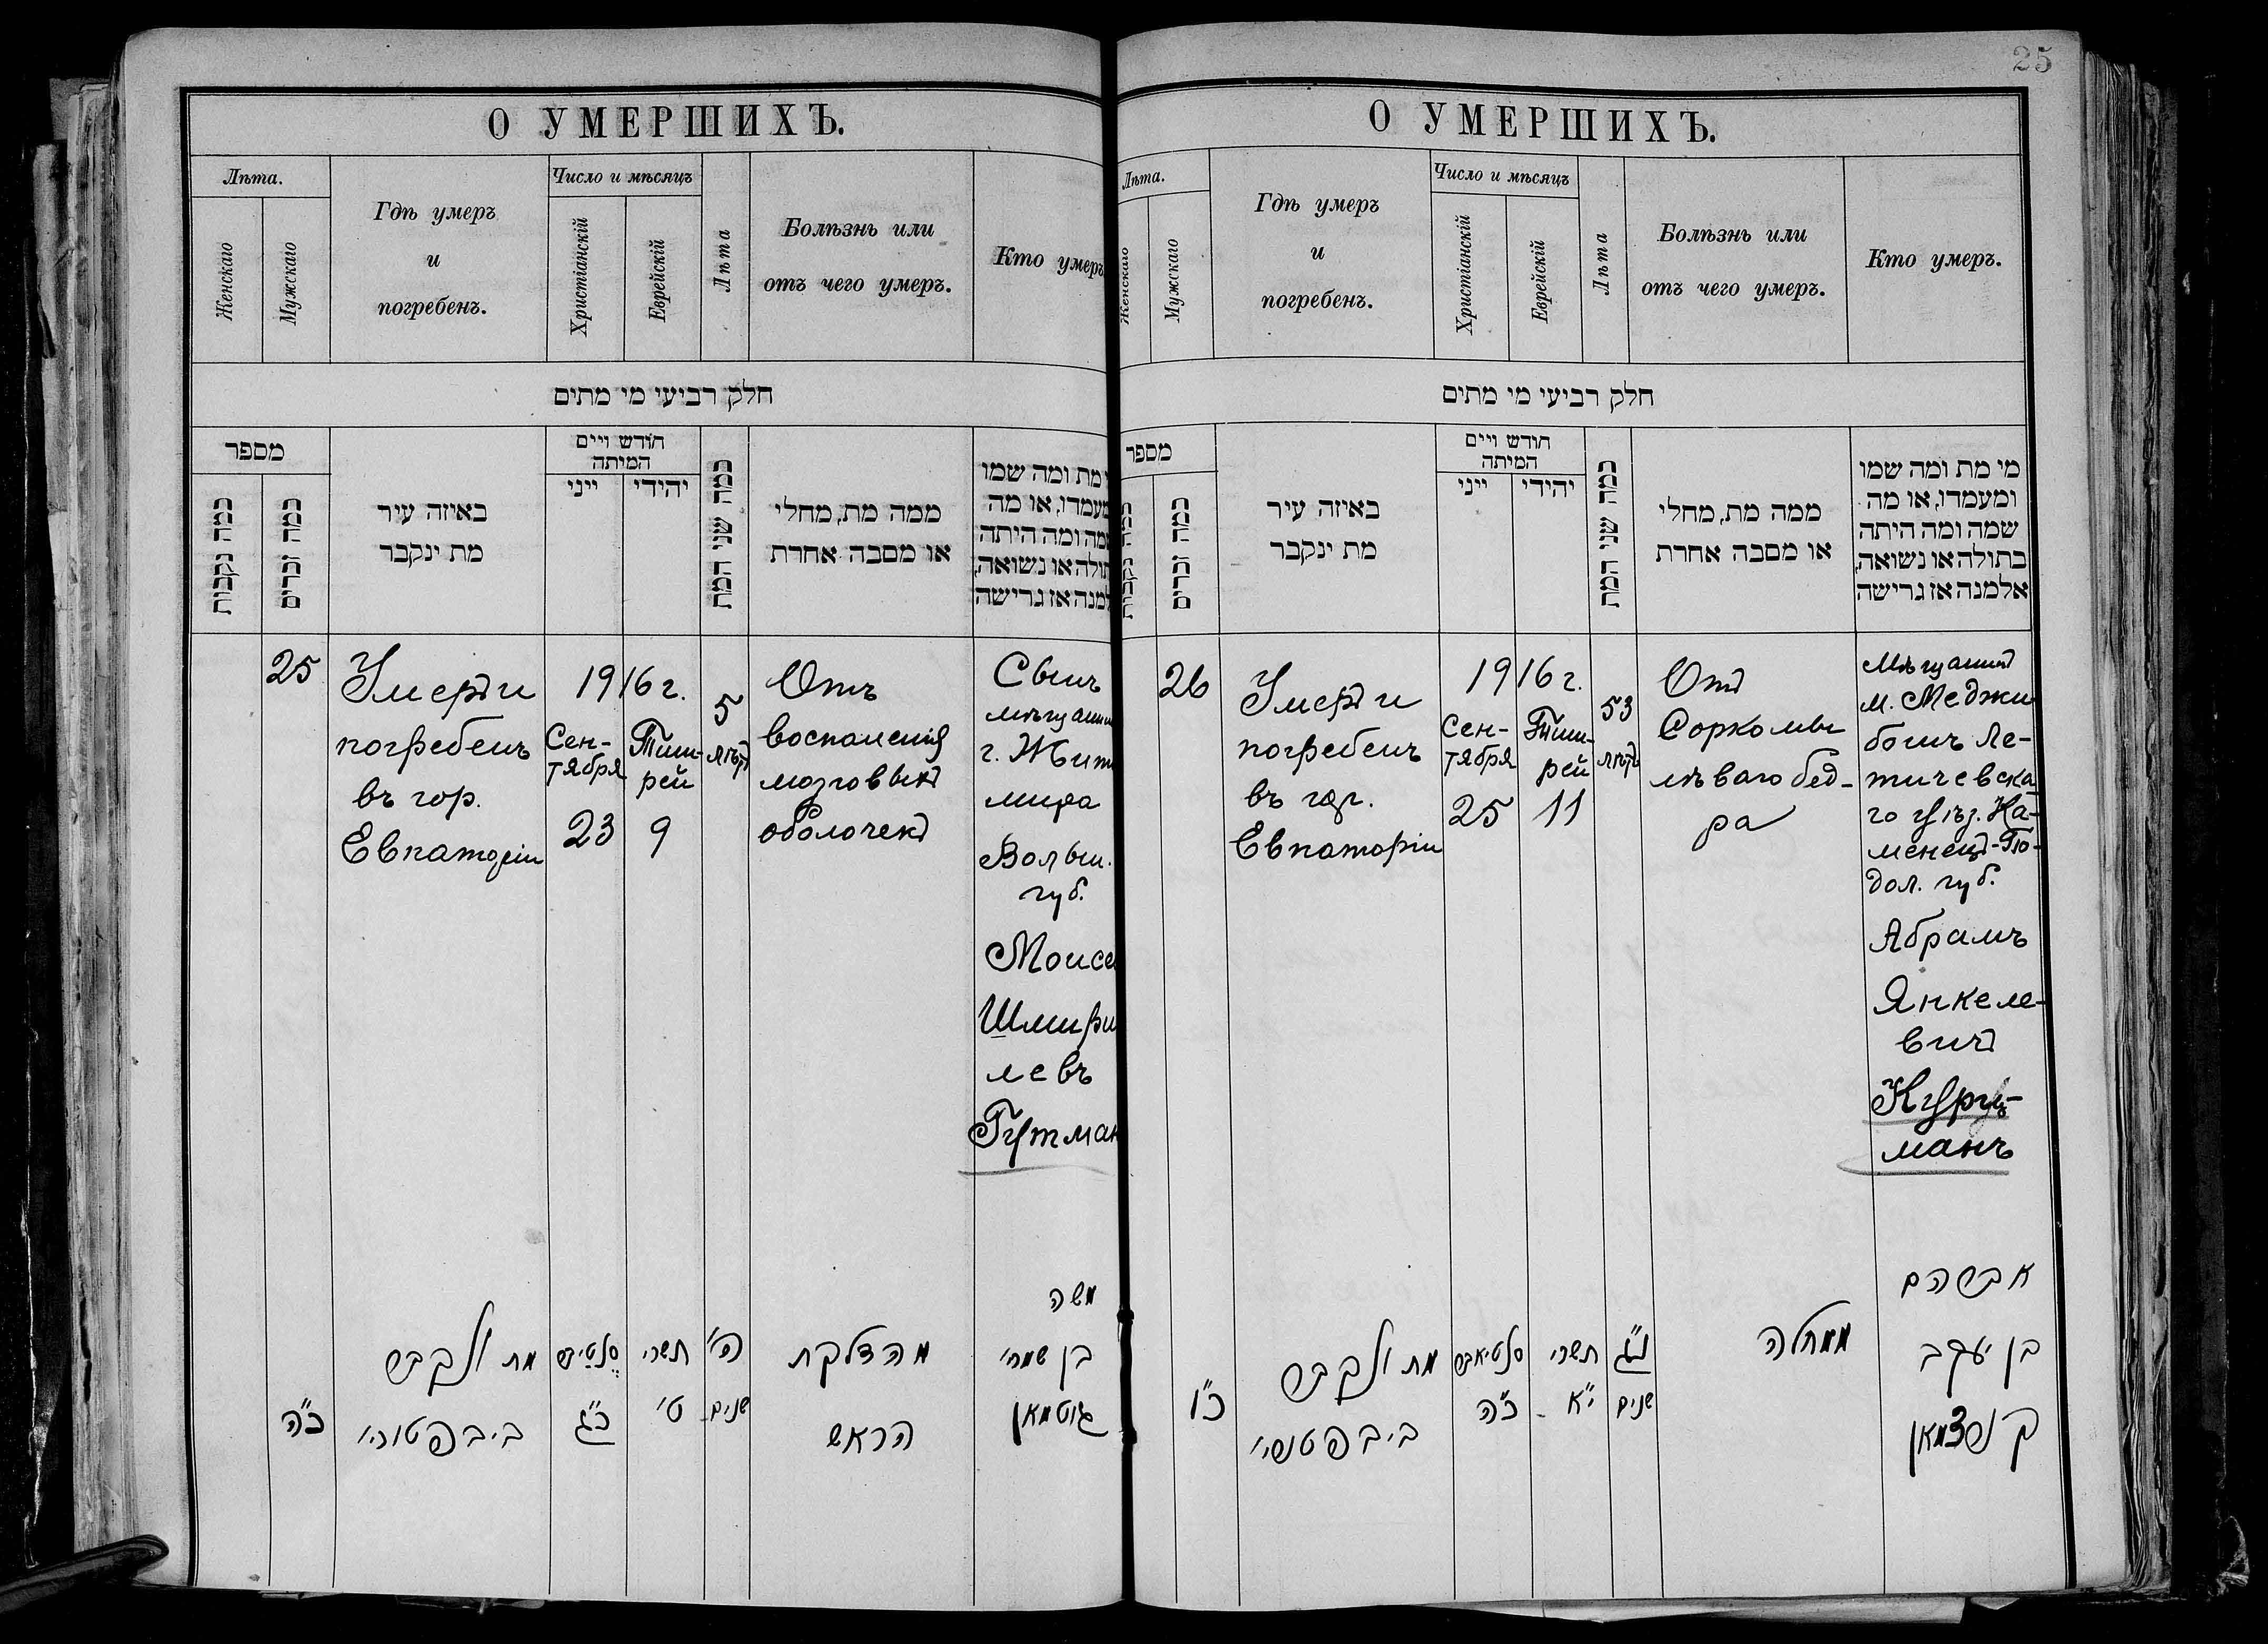 25
О УМЕРШИХЪ.
Лѣта.
Женскаго
Мужскаго
Гдѣ умеръ
и
погребенъ.
Число и мѣсяцъ
Христіанскій
Еврейскій
Лѣта
Болѣзнь или
отъ чего умеръ.
Кто умеръ
חלק רביעי מי מתים
מספר
כמה נקבות
כמה זכרים
באיזה עיר
מת ינקבר
חודש ויים
המיתה
ייני
יהידי
כמה שני המת
ממה מת, מחלי
או מסבה אחרת
מת ומה שמו
מעמדו, או מה
שמה ומה היתה
תולה או נשואה,
למנה אז גרישה
25
Умеръ и
погребенъ
въ гор.
Евпаторіи
1916 г.
Сен-
тября
23
Тиш-
рей
9
5
лѣтъ
Отъ
воспаленія
мозговыхъ
оболочекъ
Сынъ
мѣщанин
г. Жито
мира
Волын.
губ.
Моисе
Шмири
левъ
Гутман
כ"ה
מת ונקבר
ביבפטורי'
כ"ג
תשרי
ט'
ה'
שנים
מהדלקת
הראש
משה
בן שמרי'
גוטמאן
О УМЕРШИХЪ.
Лѣта.
Женскаго
Мужскаго
Гдѣ умеръ
и
погребенъ.
Число и мѣсяцъ
Христіанскій
Еврейскій
Лѣта
Болѣзнь или
отъ чего умеръ.
Кто умеръ.
חלק רביעי מי מתים
מספר
כמה נקבות
כמה זכרים
באיזה עיר
מת ינקבר
חודש ויים
המיתה
ייני
יהידי
כמה שני המת
ממה מת, מחלי
או מסבה אחרת
מי מת ומה שמו
ומעמדו, או מה
שמה ומה היתה
בתולה או נשואה,
אלמנה אז גרישה
26
Умеръ и
погребенъ
въ гор.
Евпаторіи
1916 г.
Сен-
тября
25
Тиш-
рей
11
53
лѣтъ
Отъ
Саркомы
лѣваго бед-
ра
Мѣщанинъ
м. Меджи
божъ Ле-
тичевска
го уѣз. Ка-
менецъ-По-
дол. губ.
Абрамъ
Янкеле-
вичъ
Курц-
манъ
כ"ו
מת ונקבר
ביבפטורי'
כ"ה
תשרי
י"א
נ"ג
שנים
ממחלה
אברהם
בן יעקב
קורצמאן